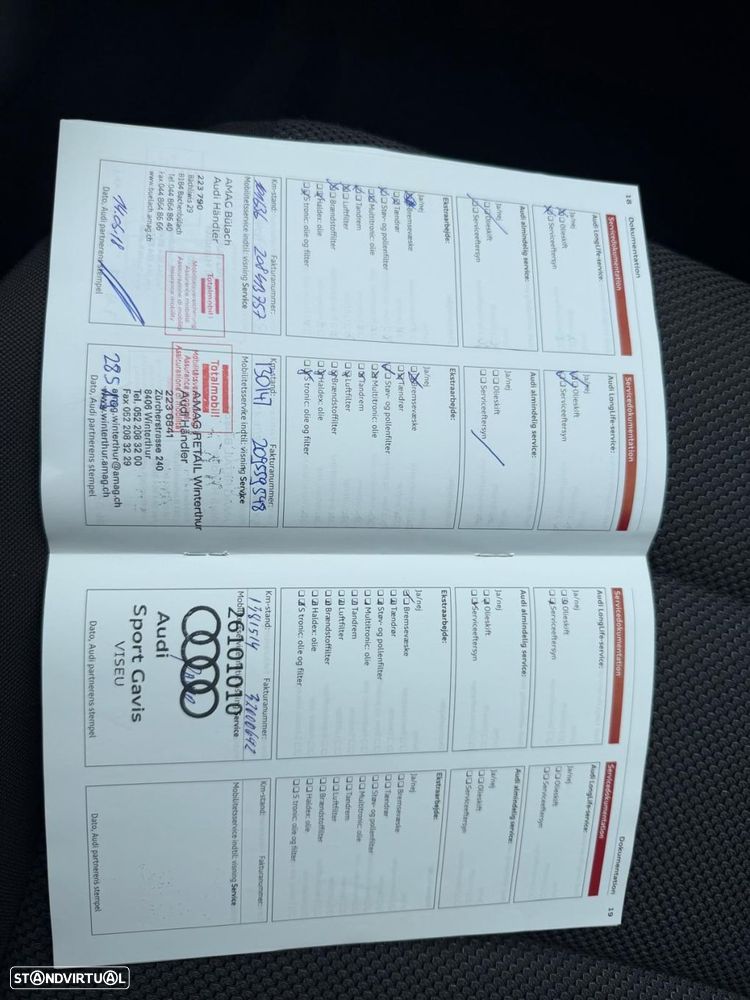 18 Dokumentation
Servicedokumentation
Audi LongLife-service:
Ja/nej
Olieskift
Serviceeftersyn
Audi almindelig service:
Ja/nej
Olieskift
Serviceeftersyn
Ekstraarbejde:
Ja/nej
Bremsevæske
Tændrør
Støv- og pollenfilter
Multitronic: olie
Tandrem
Luftfilter
Brændstoffilter
Haldex: olie
S tronic: olie og filter
Km-stand: Fakturanummer:
Mobilitetsservice indtil: visning Service
AMAG Bülach
Audi Händler
223 790
Bächliwis 29
8184 Bachenbülach
Tel. 044 864 86 40
Fax 044 864 86 66
www.buelach.amag.ch
Totalmobil!
14.05.18
Dato, Audi partnerens stempel
Servicedokumentation
Audi LongLife-service:
Ja/nej
Olieskift
Serviceeftersyn
Audi almindelig service:
Ja/nej
Olieskift
Serviceeftersyn
Ekstraarbejde:
Ja/nej
Bremsevæske
Tændrør
Støv- og pollenfilter
Multitronic: olie
Tandrem
Luftfilter
Brændstoffilter
Haldex: olie
S tronic: olie og filter
Km-stand: Fakturanummer:
209559548
Mobilitetsservice indtil: visning Service
Totalmobil!
AMAG RETAIL Winterthur
Audi Händler
223 6841
Zürcherstrasse 240
8406 Winterthur
Tel. 052 208 32 00
Fax 052 208 32 29
amag.winterthur@amag.ch
www.winterthur.amag.ch
Dato, Audi partnerens stempel
Servicedokumentation
Audi LongLife-service:
Ja/nej
Olieskift
Serviceeftersyn
Audi almindelig service:
Ja/nej
Olieskift
Serviceeftersyn
Ekstraarbejde:
Ja/nej
Bremsevæske
Tændrør
Støv- og pollenfilter
Multitronic: olie
Tandrem
Luftfilter
Brændstoffilter
Haldex: olie
S tronic: olie og filter
Km-stand: Fakturanummer:
Service
Audi
Sport Gavis
VISEU
Dato, Audi partnerens stempel
Dokumentation 19
Servicedokumentation
Audi LongLife-service:
Ja/nej
Olieskift
Serviceeftersyn
Audi almindelig service:
Ja/nej
Olieskift
Serviceeftersyn
Ekstraarbejde:
Ja/nej
Bremsevæske
Tændrør
Støv- og pollenfilter
Multitronic: olie
Tandrem
Luftfilter
Brændstoffilter
Haldex: olie
S tronic: olie og filter
Km-stand: Fakturanummer:
Mobilitetsservice indtil: visning Service
Dato, Audi partnerens stempel
STANDVIRTUAL